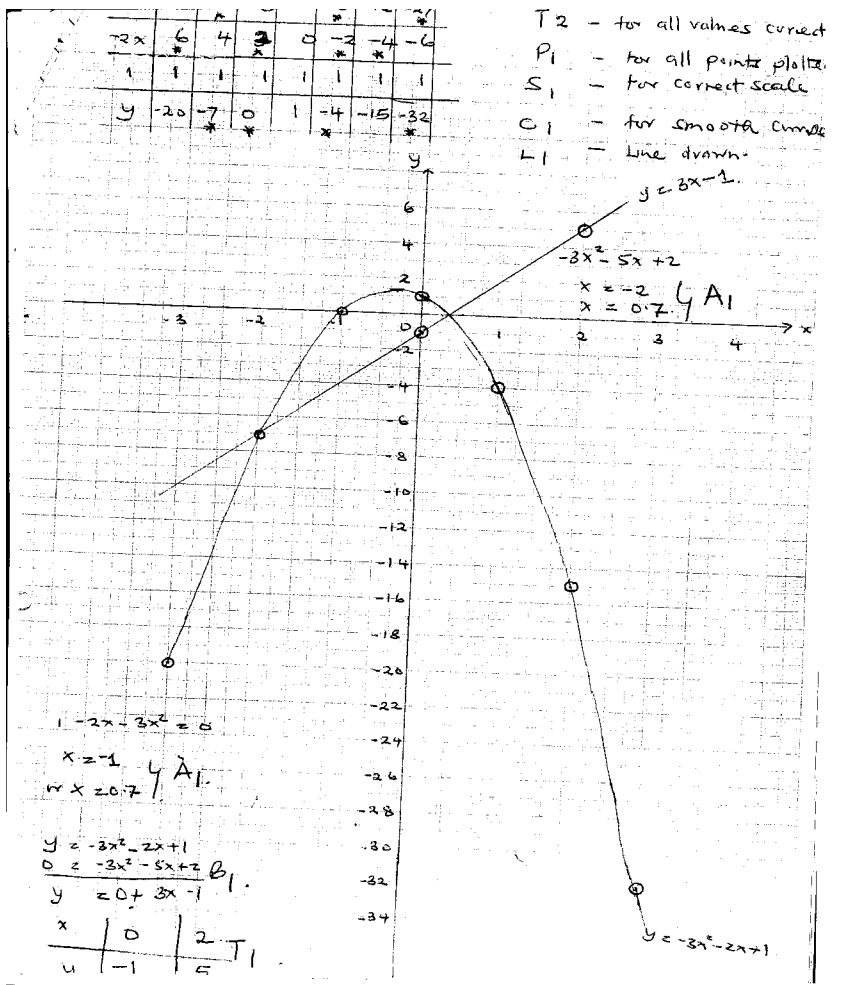 -2x 6 4 2 0 -2 -4 -6
* * * *
1 1 1 1 1 1 1 1
y -20 -7 0 1 -4 -15 -32
* * * *
T2 - for all values correct
P1 - for all points plotte
S1 - for correct scale
C1 - for smooth curve
L1 - Line drawn.
y
y = 3x-1.
6
4
2
0
-3x² - 5x + 2
x = -2
x = 0.7 } A1
-3 -2 -1 1 2 3 4 x
-2
-4
-6
-8
-10
-12
-14
-16
-18
-20
-22
-24
-26
-28
-30
-32
-34
1 - 2x - 3x² = 0
x = -1
or x = 0.7 } A1.
y = -3x² - 2x + 1
0 = -3x² - 5x + 2 B1.
y = 0 + 3x - 1
x 0 2 T1.
y -1 5
y = -3x² - 2x + 1